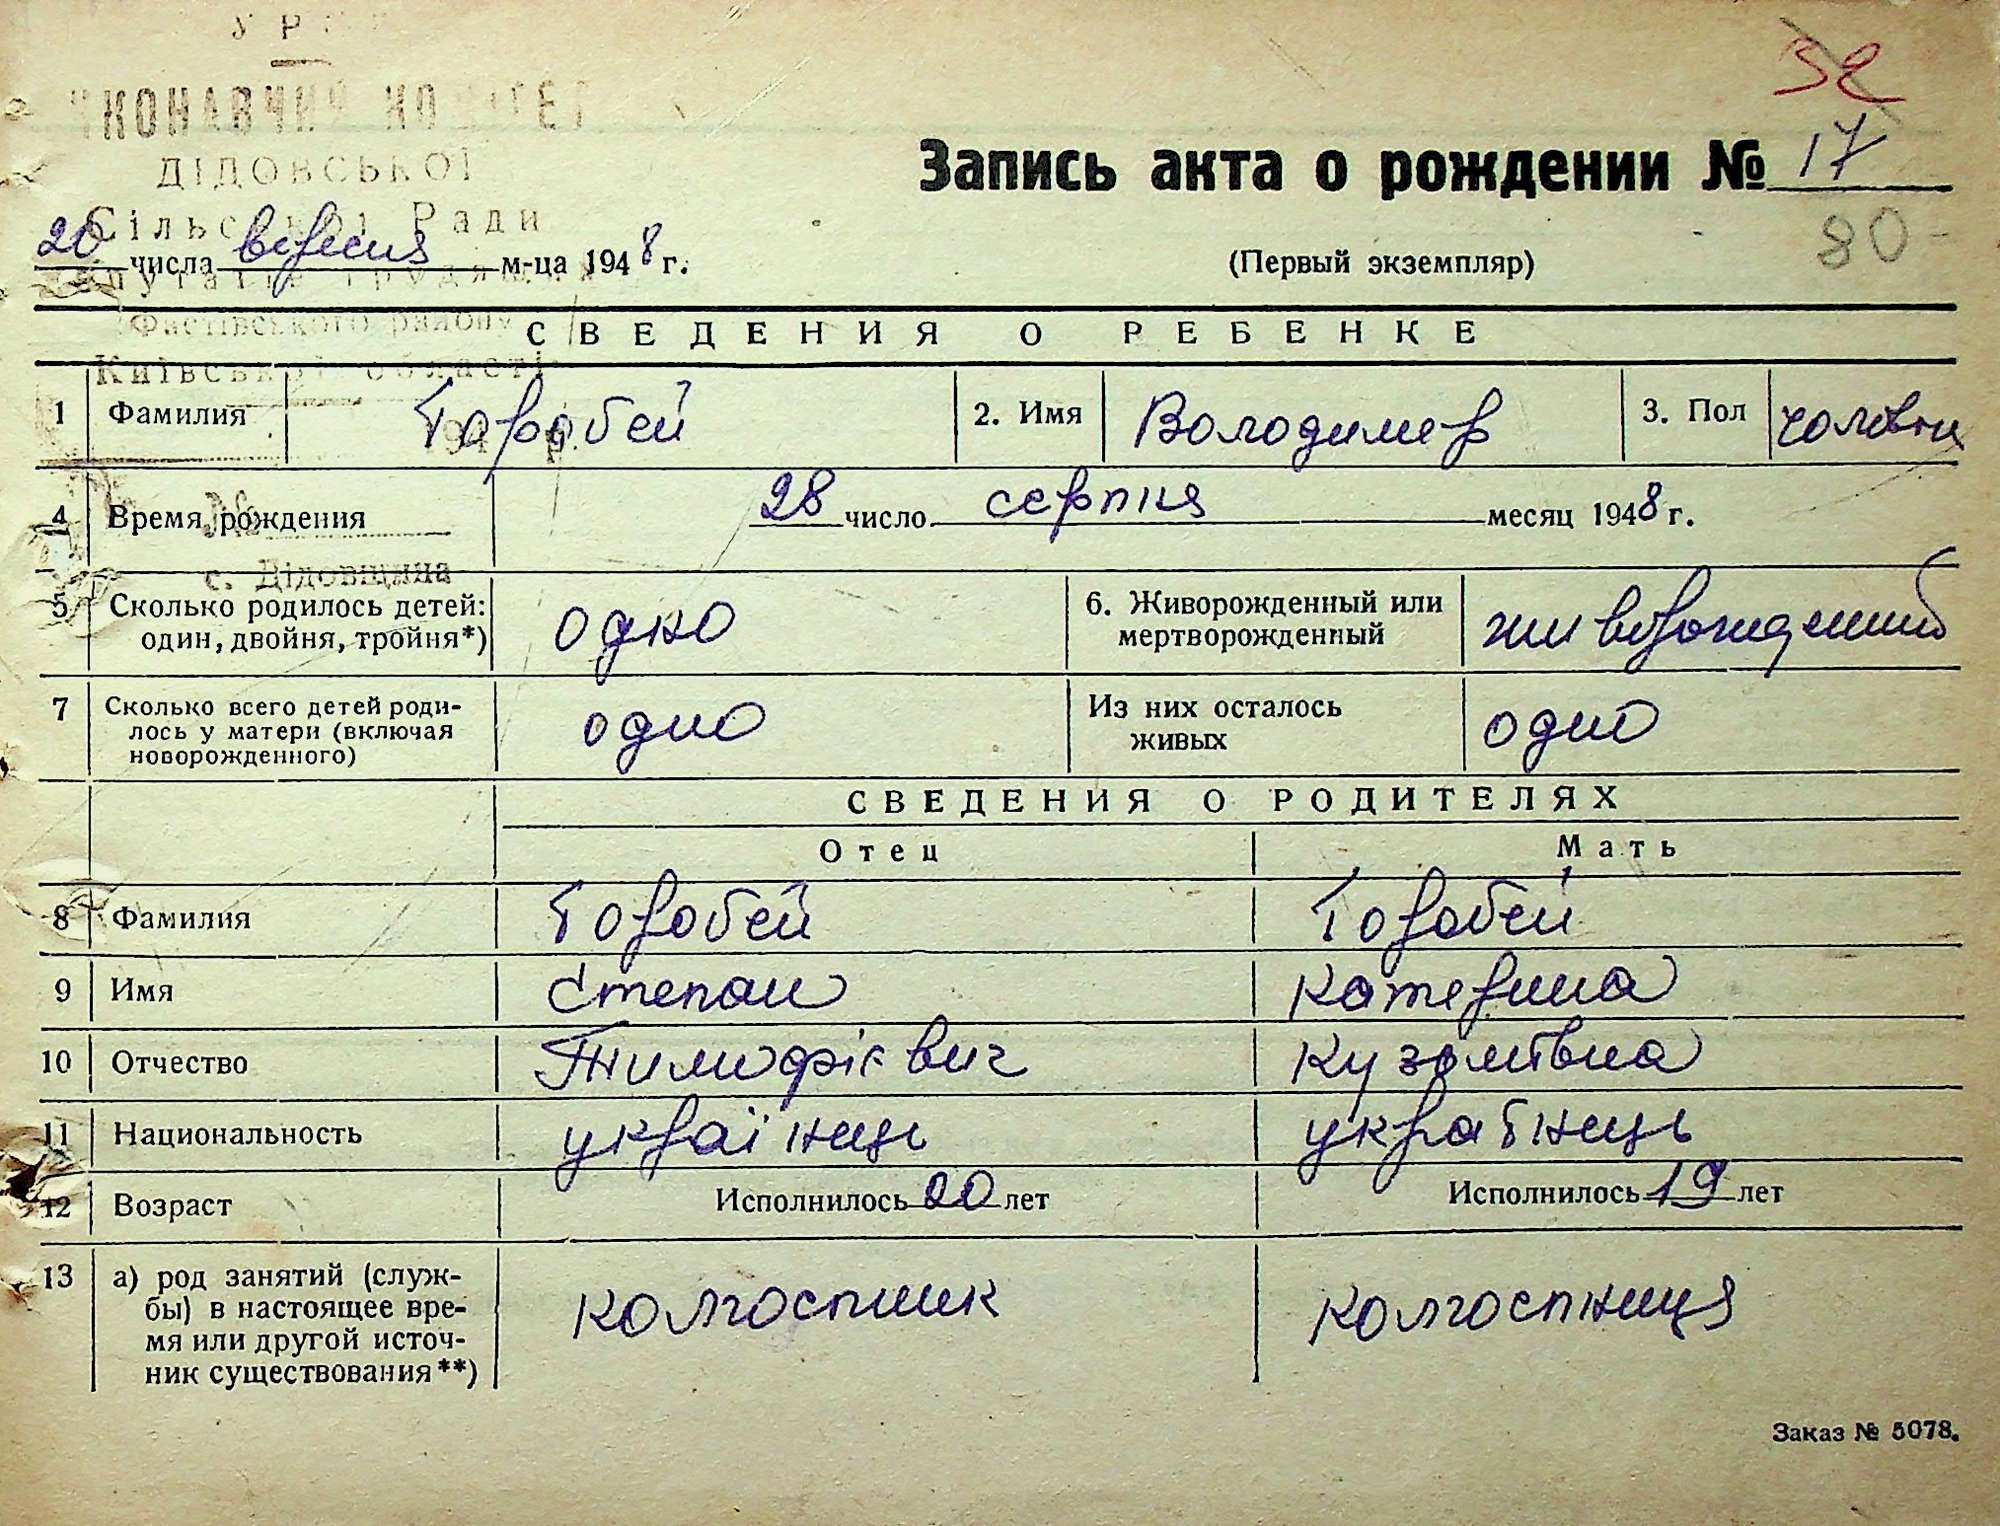 У Р
ДІДОВСЬКОЇ
Сільської Ради
Фастівського району
Київської області
194 р.
№
с. Дідовщина
52
Запись акта о рождении № 17
80
20 числа вересня м-ца 1948 г.
(Первый экземпляр)
СВЕДЕНИЯ О РЕБЕНКЕ
1 Фамилия Горобей 2. Имя Володимер 3. Пол
4 Время рождения 28 число серпня месяц 1948 г.
5 Сколько родилось детей: один, двойня, тройня*) одно 6. Живорожденный или мертворожденный
7 Сколько всего детей родилось у матери (включая новорожденного) одно Из них осталось живых одно
СВЕДЕНИЯ О РОДИТЕЛЯХ
Отец Мать
8 Фамилия Горобей Горобей
9 Имя Степан Катерина
10 Отчество Тимофієвич Кузьмівна
11 Национальность українець українець
12 Возраст Исполнилось 20 лет Исполнилось 19 лет
13 а) род занятий (службы) в настоящее время или другой источник существования**) колгоспник колгоспниця
Заказ № 5078.